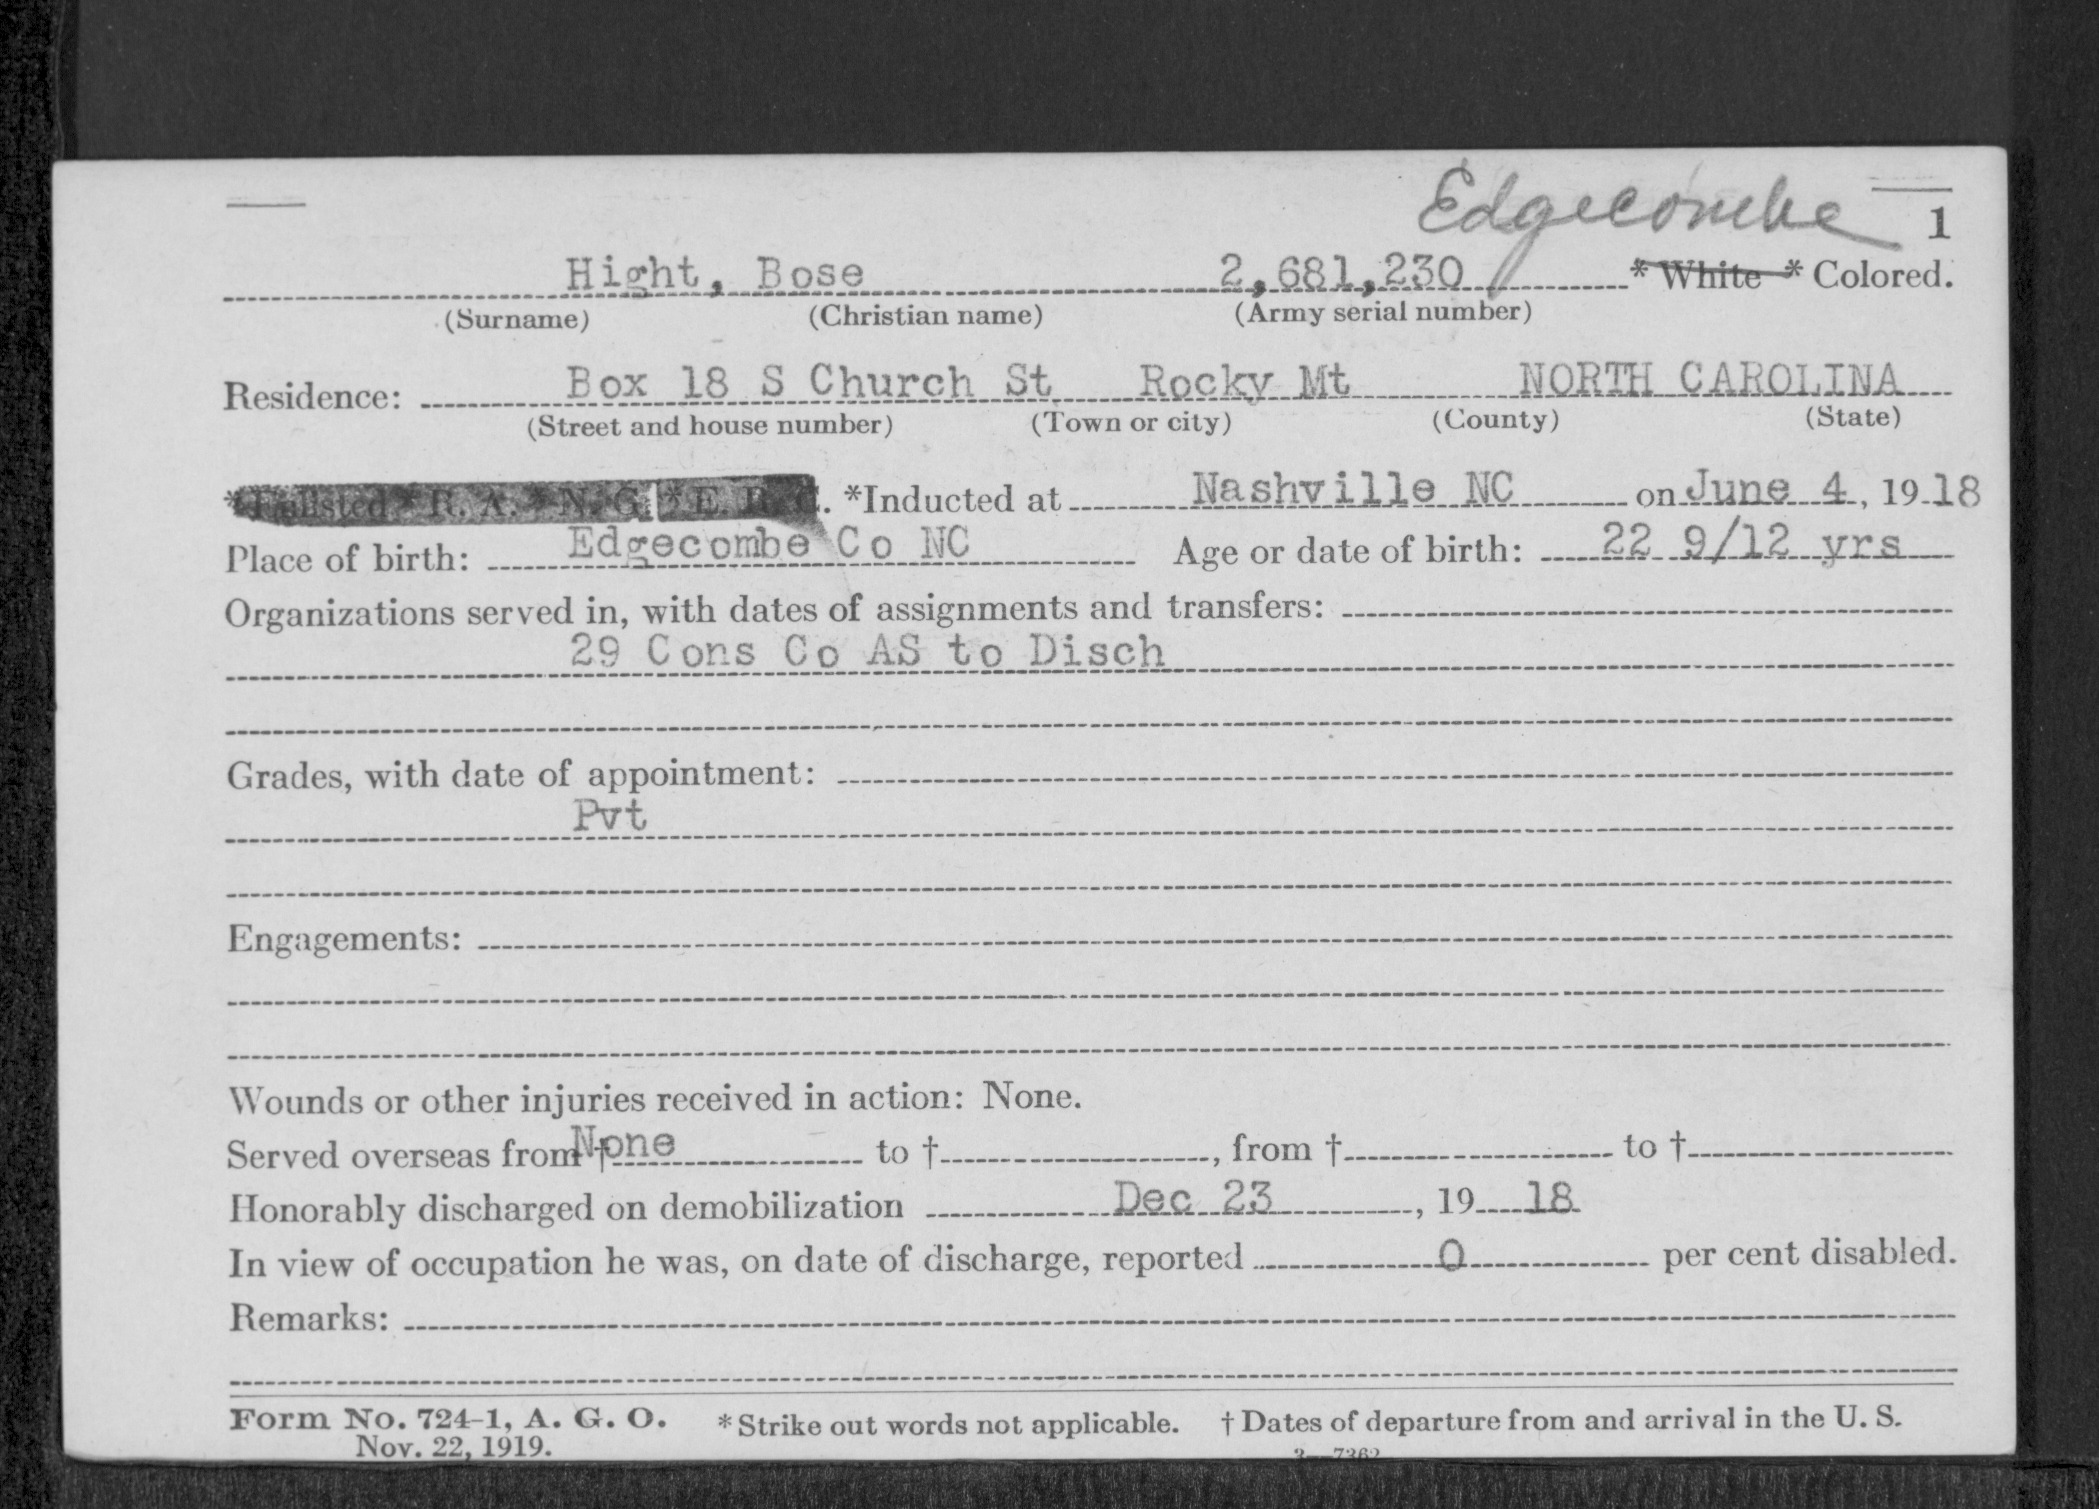 Edgecombe
1
Hight, Bose 2,681,230 * White * Colored.
(Surname) (Christian name) (Army serial number)
Residence: Box 18 S Church St Rocky Mt NORTH CAROLINA
(Street and house number) (Town or city) (County) (State)
* Enlisted * R. A. * N. G. * E. R. C. *Inducted at Nashville NC on June 4, 1918
Place of birth: Edgecombe Co NC Age or date of birth: 22 9/12 yrs
Organizations served in, with dates of assignments and transfers:
29 Cons Co AS to Disch
Grades, with date of appointment:
Pvt
Engagements:
Wounds or other injuries received in action: None.
Served overseas from † None to †, from † to †
Honorably discharged on demobilization Dec 23, 19 18
In view of occupation he was, on date of discharge, reported 0 per cent disabled.
Remarks:
Form No. 724-1, A. G. O. * Strike out words not applicable. † Dates of departure from and arrival in the U. S.
Nov. 22, 1919. 3—7362